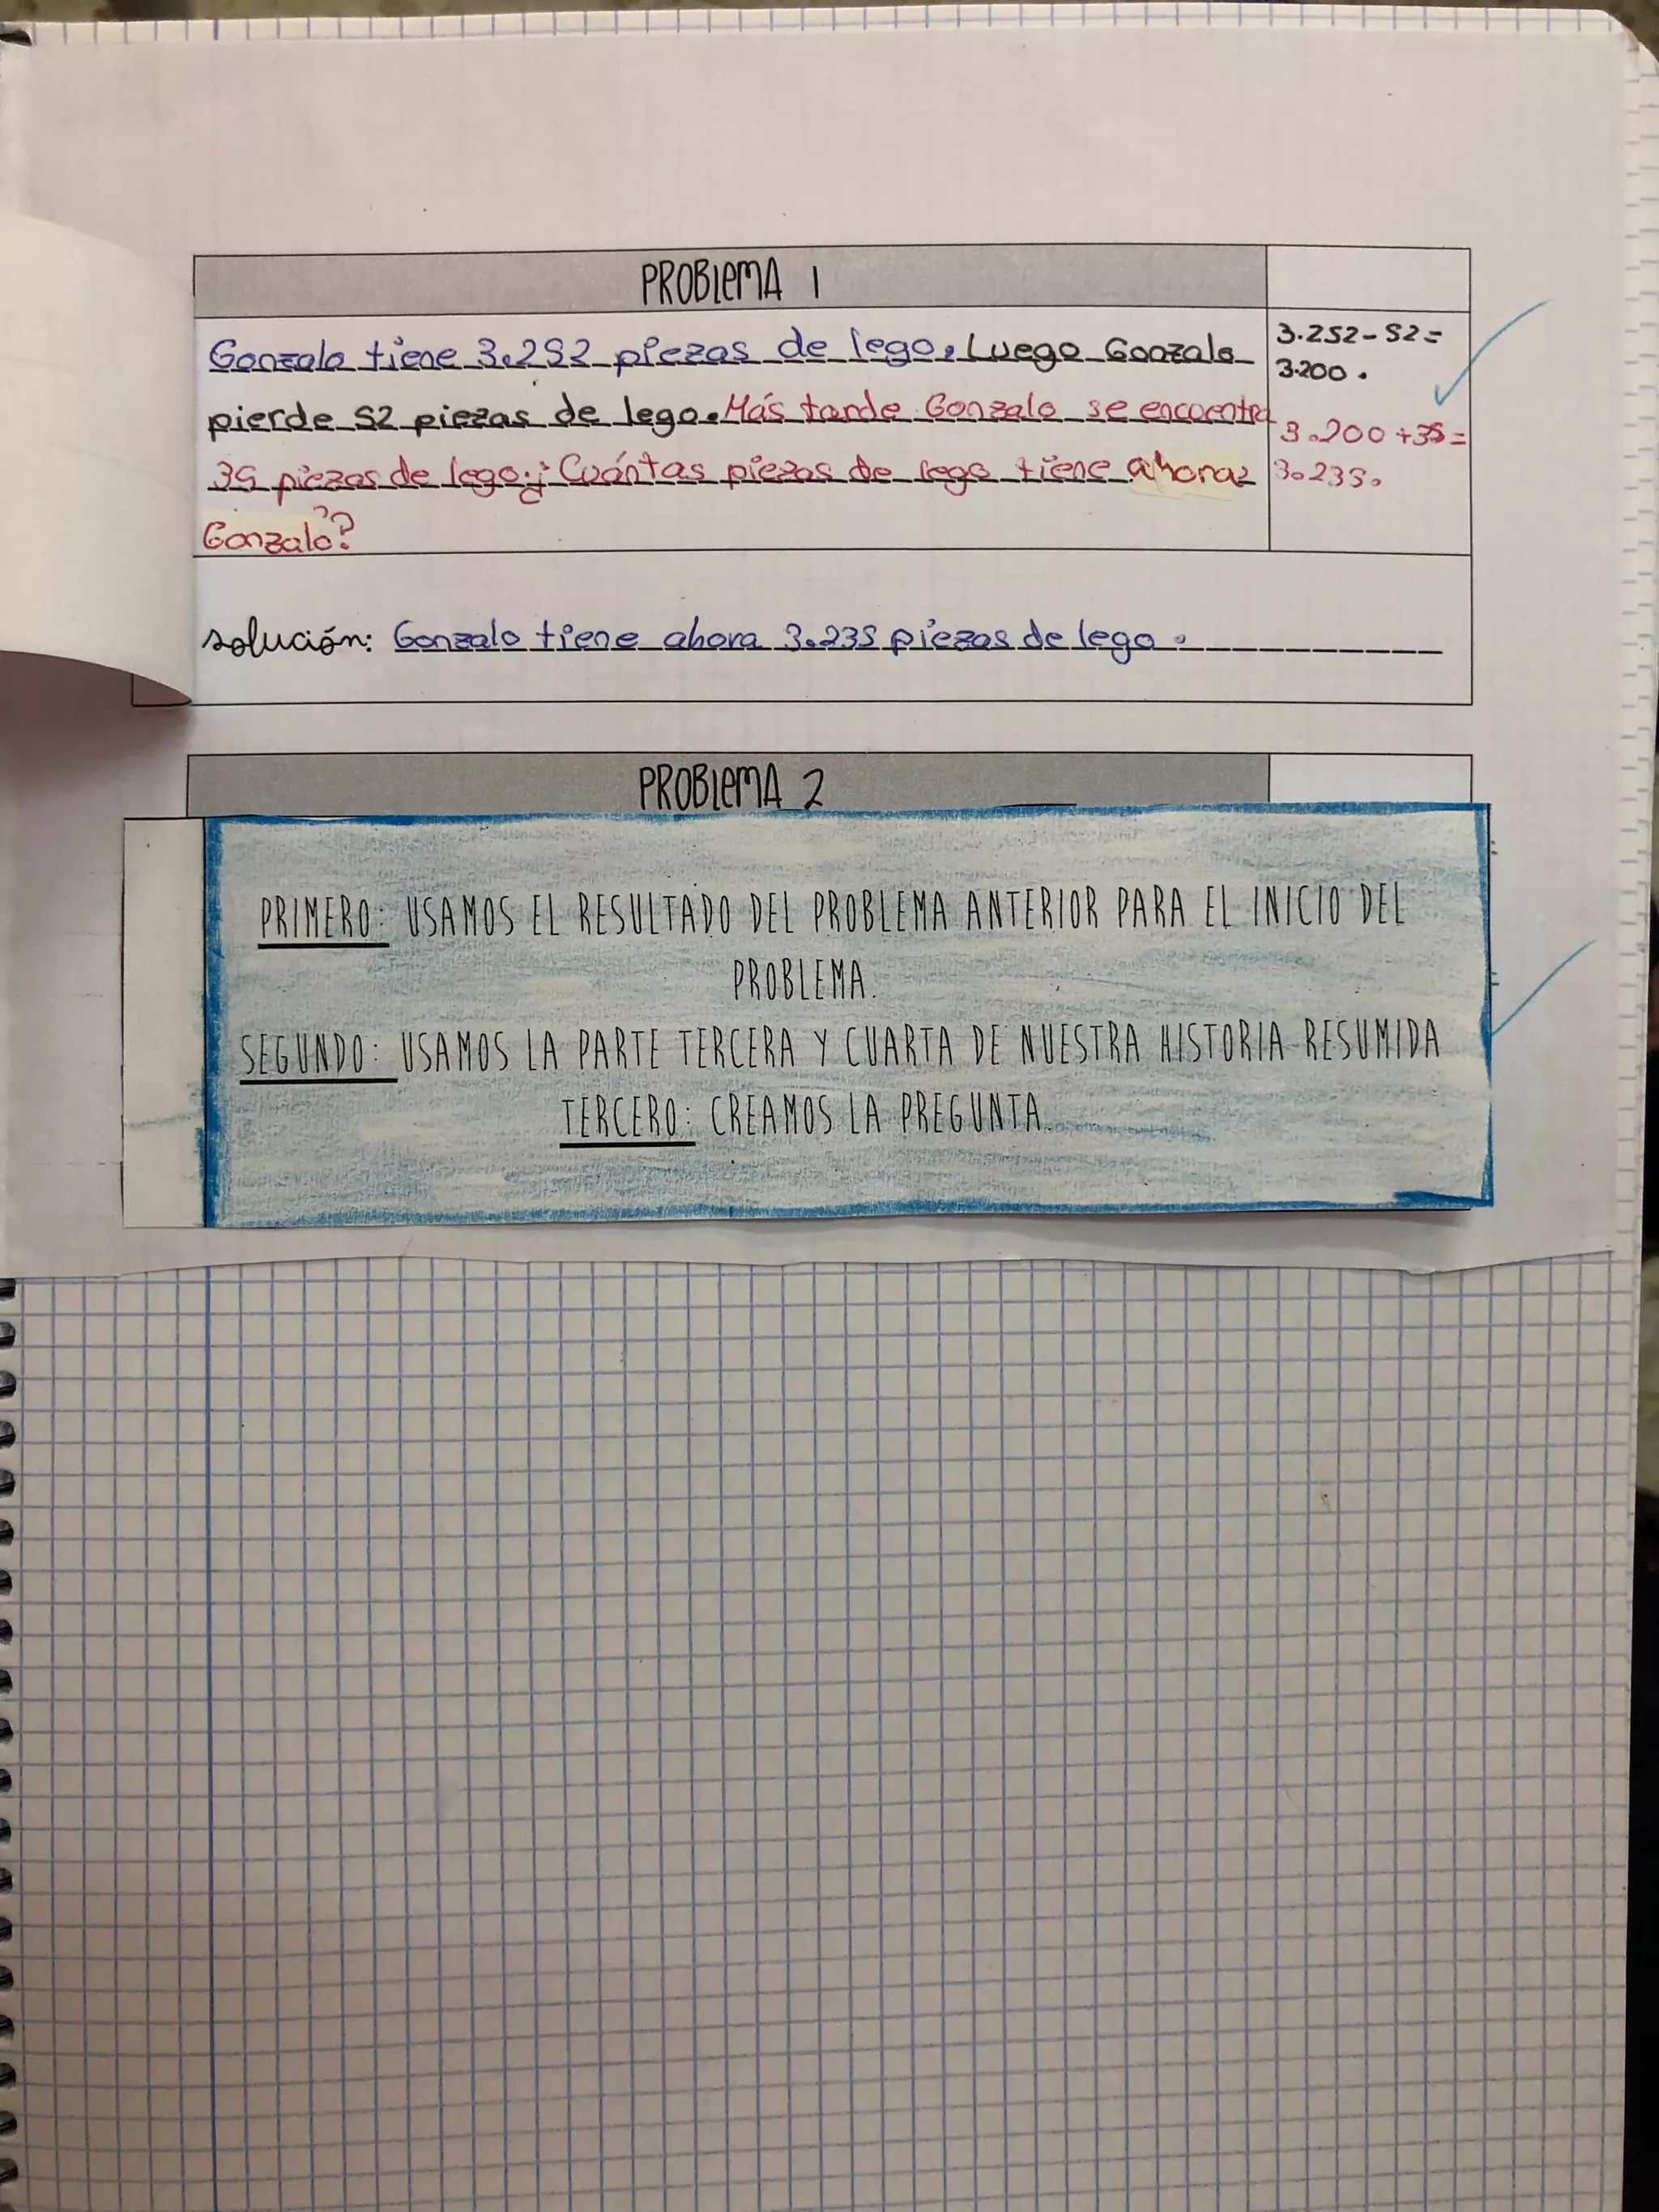 PROBLEMA 1
Gonzalo tiene 3.252 piezas de lego. Luego Gonzalo
pierde 52 piezas de lego. Más tarde Gonzalo se encuentra
35 piezas de lego. ¿Cuántas piezas de lego tiene ahora
Gonzalo?
3.252-52=
3.200.
3.200+35=
3.235.
solución: Gonzalo tiene ahora 3.235 piezas de lego.
PROBLEMA 2
PRIMERO: USAMOS EL RESULTADO DEL PROBLEMA ANTERIOR PARA EL INICIO DEL
PROBLEMA.
SEGUNDO: USAMOS LA PARTE TERCERA Y CUARTA DE NUESTRA HISTORIA RESUMIDA
TERCERO: CREAMOS LA PREGUNTA.